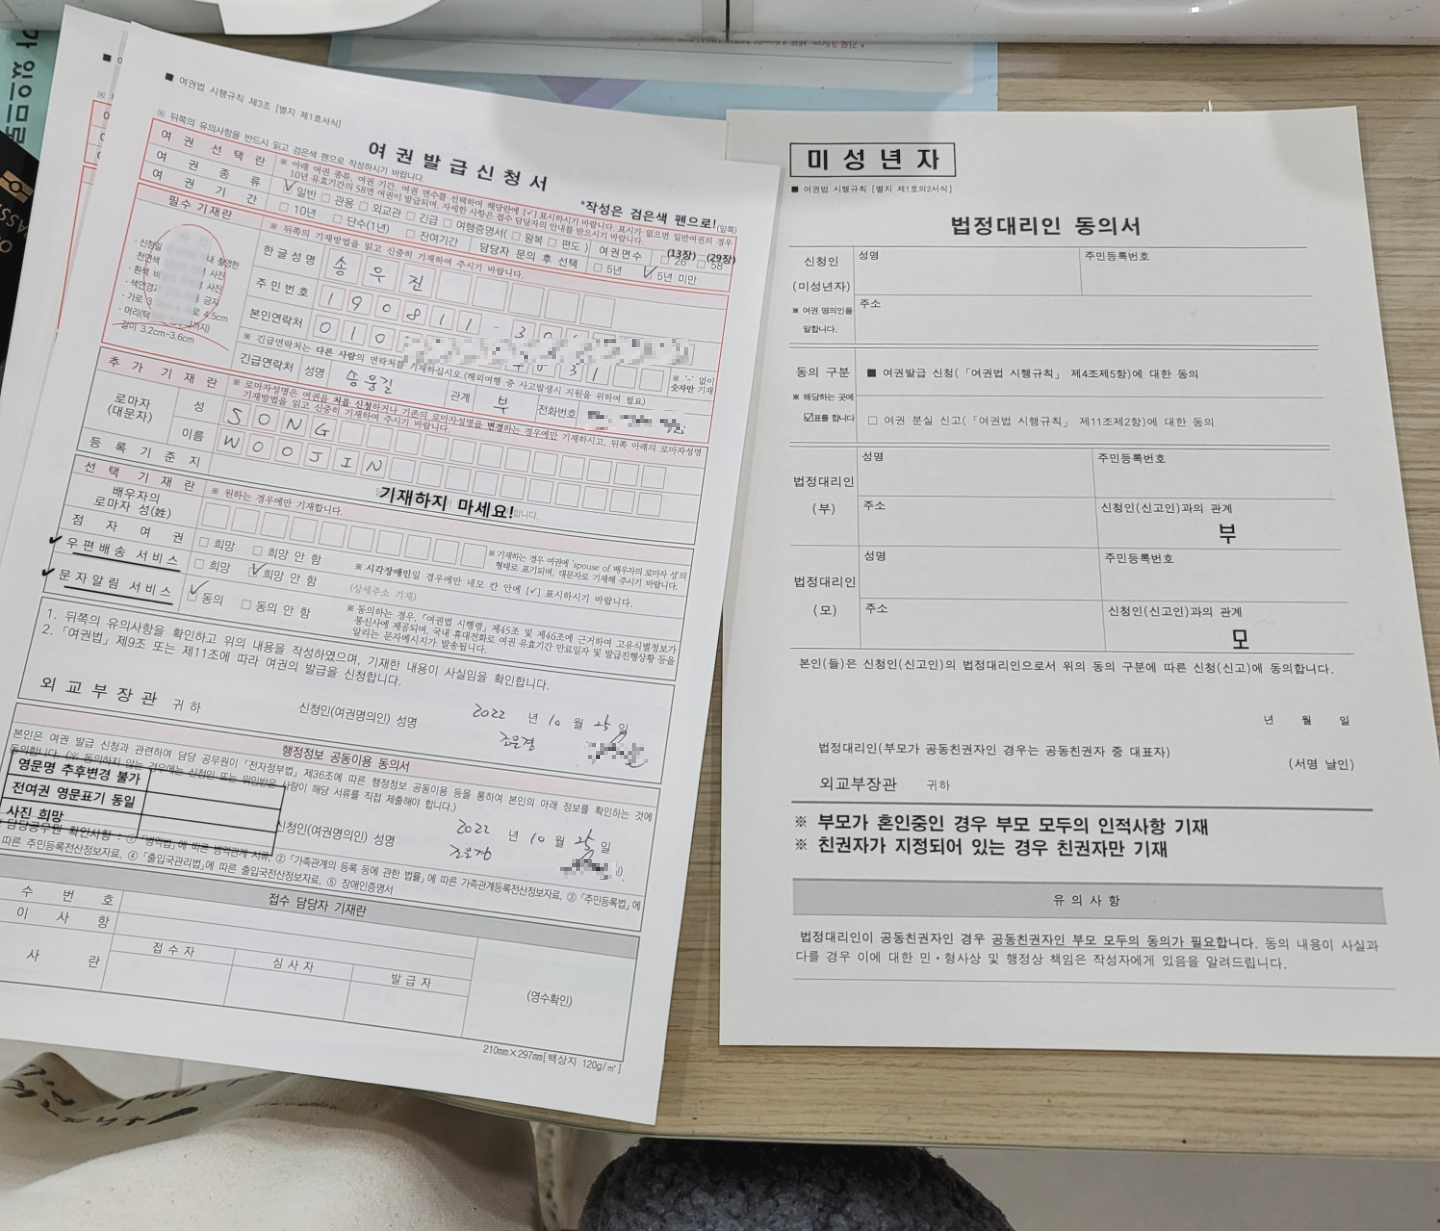 ■ 여권법 시행규칙 제3조 [별지 제1호서식]
여권발급신청서
*작성은 검은색 펜으로!
(앞쪽)
※ 뒤쪽의 유의사항을 반드시 읽고 검은색 펜으로 작성하시기 바랍니다.
여권 선택란
※ 아래 여권 종류, 여권 기간, 여권 면수를 선택하여 해당란에 [✓] 표시하시기 바랍니다. 표시가 없으면 일반여권의 경우
10년 유효기간의 58면 여권이 발급되며, 자세한 사항은 접수 담당자의 안내를 받으시기 바랍니다.
여권 종류
✓일반 □ 관용 □ 외교관 □ 긴급 □ 여행증명서( □ 왕복 □ 편도 )
여권면수
□ 26 □ 58
(13장) (29장)
여권 기간
□ 10년 □ 단수(1년) □ 잔여기간
담당자 문의 후 선택
□ 5년 ✓5년 미만
필수 기재란
※ 뒤쪽의 기재방법을 읽고 신중히 기재하여 주시기 바랍니다.
한글성명
송우진
주민번호
190811-
본인연락처
010
※ '-' 없이
숫자만 기재
※ 긴급연락처는 다른 사람의 연락처를 기재하십시오.(해외여행 중 사고발생시 지원을 위하여 필요)
긴급연락처 성명 송웅길 관계 부 전화번호
길이 3.2cm~3.6cm
추가 기재란
※ 로마자성명은 여권을 처음 신청하거나 기존의 로마자성명을 변경하는 경우에만 기재하시고, 뒤쪽 아래의 로마자성명
기재방법을 읽고 신중히 기재하여 주시기 바랍니다.
로마자
(대문자)
성 SONG
이름 WOOJIN
등록기준지
기재하지 마세요!
선택 기재란
※ 원하는 경우에만 기재합니다.
배우자의
로마자 성(姓)
※ 기재하는 경우 여권에 'spouse of 배우자의 로마자 성'의
형태로 표기되며, 대문자로 기재해 주시기 바랍니다.
점자여권
□ 희망 □ 희망 안 함
※ 시각장애인일 경우에만 네모 칸 안에 [✓] 표시하시기 바랍니다.
✓ 우편배송 서비스
□ 희망 ✓희망 안 함
(상세주소 기재)
✓ 문자알림 서비스
✓동의 □ 동의 안 함
※ 동의하는 경우, 「여권법 시행령」 제45조 및 제46조에 근거하여 고유식별정보가
통신사에 제공되며, 국내 휴대전화로 여권 유효기간 만료일자 및 발급진행상황 등을
알리는 문자메시지가 발송됩니다.
1. 뒤쪽의 유의사항을 확인하고 위의 내용을 작성하였으며, 기재한 내용이 사실임을 확인합니다.
2. 「여권법」 제9조 또는 제11조에 따라 여권의 발급을 신청합니다.
2022 년 10 월 25 일
외교부장관 귀하
신청인(여권명의인) 성명 조은경
행정정보 공동이용 동의서
본인은 여권 발급 신청과 관련하여 담당 공무원이 「전자정부법」 제36조에 따른 행정정보 공동이용 등을 통하여 본인의 아래 정보를 확인하는 것에
사람이 해당 서류를 직접 제출해야 합니다.)
영문명 추후변경 불가
전여권 영문표기 동일
사진 희망
2022 년 10 월 25 일
신청인(여권명의인) 성명 조은경
② 「가족관계의 등록 등에 관한 법률」에 따른 가족관계등록전산정보자료, ③ 「주민등록법」에
따른 주민등록전산정보자료, ④ 「출입국관리법」에 따른 출입국전산정보자료, ⑤ 장애인증명서
접수 담당자 기재란
수 번 호
이 사 항
사 란
접수자
심사자
발급자
(영수확인)
210mm×297mm[백상지 120g/㎡]
미성년자
■ 여권법 시행규칙 [별지 제1호의2서식]
법정대리인 동의서
신청인
(미성년자)
※ 여권 명의인을
말합니다.
성명
주민등록번호
주소
동의 구분
※ 해당하는 곳에
☑표를 합니다
■ 여권발급 신청(「여권법 시행규칙」 제4조제5항)에 대한 동의
□ 여권 분실 신고(「여권법 시행규칙」 제11조제2항)에 대한 동의
법정대리인
(부)
성명
주민등록번호
주소
신청인(신고인)과의 관계
부
법정대리인
(모)
성명
주민등록번호
주소
신청인(신고인)과의 관계
모
본인(들)은 신청인(신고인)의 법정대리인으로서 위의 동의 구분에 따른 신청(신고)에 동의합니다.
년 월 일
법정대리인(부모가 공동친권자인 경우는 공동친권자 중 대표자)
(서명 날인)
외교부장관 귀하
※ 부모가 혼인중인 경우 부모 모두의 인적사항 기재
※ 친권자가 지정되어 있는 경우 친권자만 기재
유의사항
법정대리인이 공동친권자인 경우 공동친권자인 부모 모두의 동의가 필요합니다. 동의 내용이 사실과
다를 경우 이에 대한 민·형사상 및 행정상 책임은 작성자에게 있음을 알려드립니다.